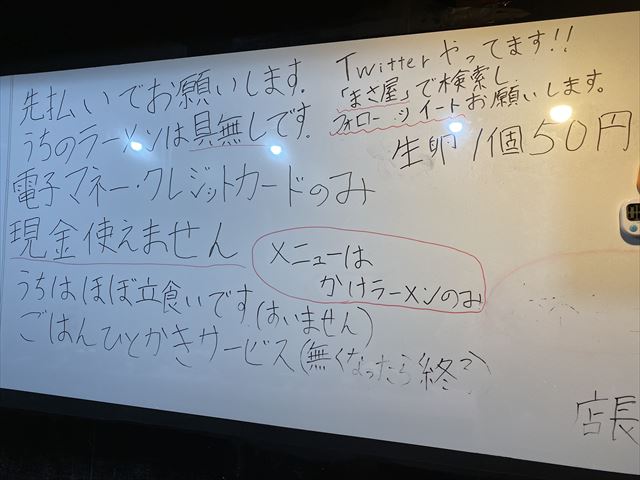 先払いでお願いします.
うちのラーメンは具無しです.
電子マネー・クレジットカードのみ
現金使えません
うちはほぼ立食いです
ごはんひとかきサービス(無くなったら終り)
Twitterやってます!!
「まさ屋」で検索し.
フォロー.ツイートお願いします。
生卵1個50円
メニューは
かけラーメンのみ
店長